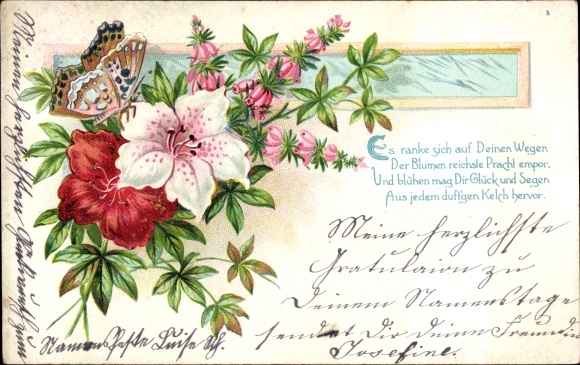 Es ranke sich auf Deinen Wegen
Der Blumen reichste Pracht empor,
Und blühen mag Dir Glück und Segen
Aus jedem duft'gen Kelch hervor.
Meine herzlichste
Gratulaion zu
Deinem Namenstage
sendet Dir deine Freundin
Josefine.
Meinen herzlichsten Glückwunsch zum
Namensfeste Luise Sch.